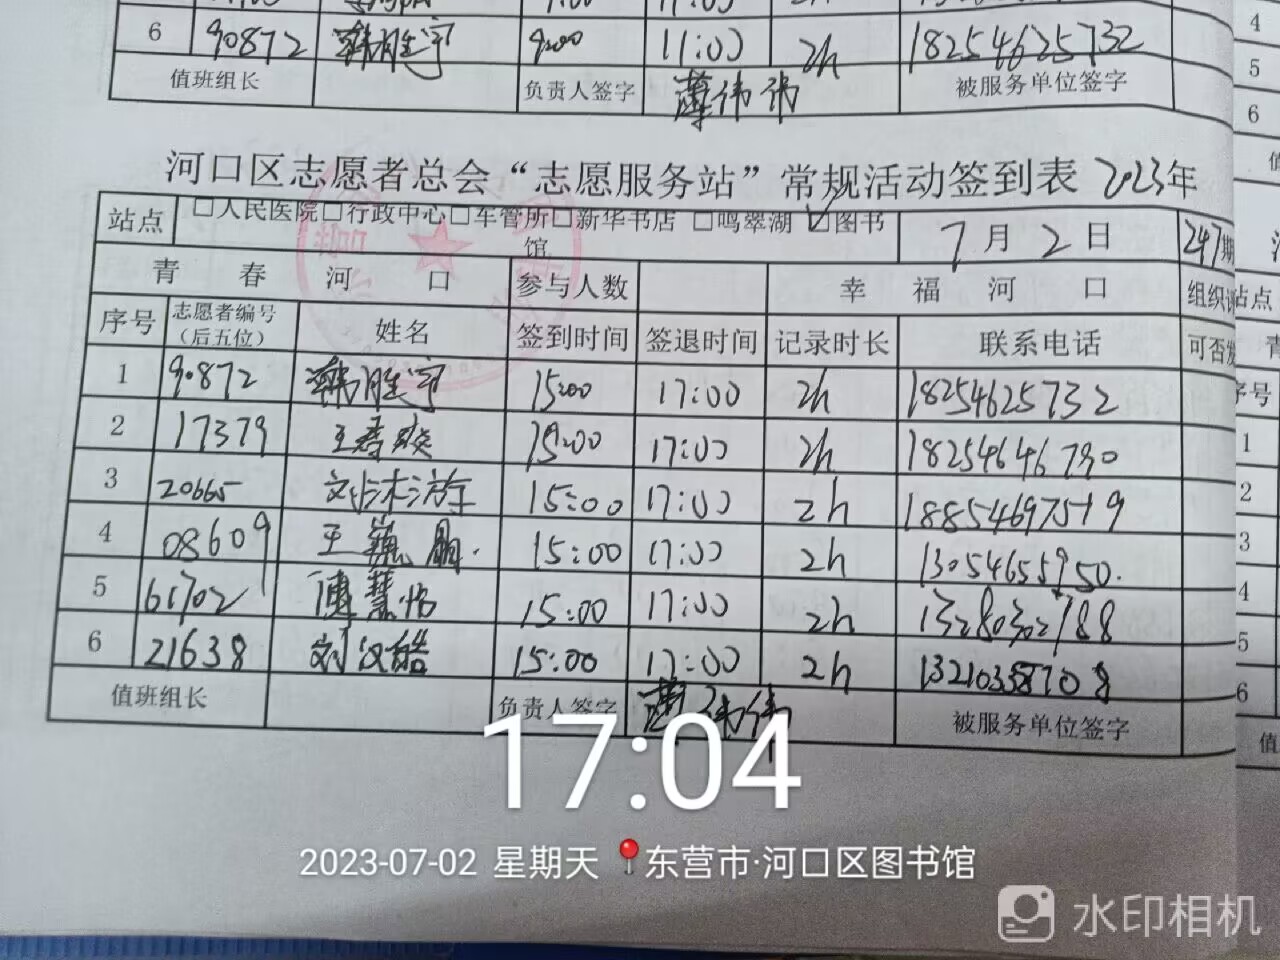 6 90872 韩胜宇 9:00 11:00 2h 18254625732
值班组长 负责人签字 薄伟伟 被服务单位签字
河口区志愿者总会“志愿服务站”常规活动签到表 2023年
站点 □人民医院□行政中心□车管所□新华书店 □鸣翠湖 ☑图书馆 7月2日 247期
青春河口 参与人数 幸福河口 组织
序号 志愿者编号（后五位） 姓名 签到时间 签退时间 记录时长 联系电话 可否
1 90872 韩胜宇 15:00 17:00 2h 18254625732
2 17379 王 15:00 17:00 2h 18254646790
3 20665 15:00 17:00 2h 18854697519
4 08609 王 15:00 17:00 2h 13054655950
5 61702 15:00 17:00 2h 13280302788
6 21638 刘汉皓 15:00 17:00 2h 13210358708
值班组长 负责人签字 薄伟伟 被服务单位签字
站点
序号
1
2
3
4
5
6
17:04
2023-07-02 星期天 东营市·河口区图书馆
水印相机